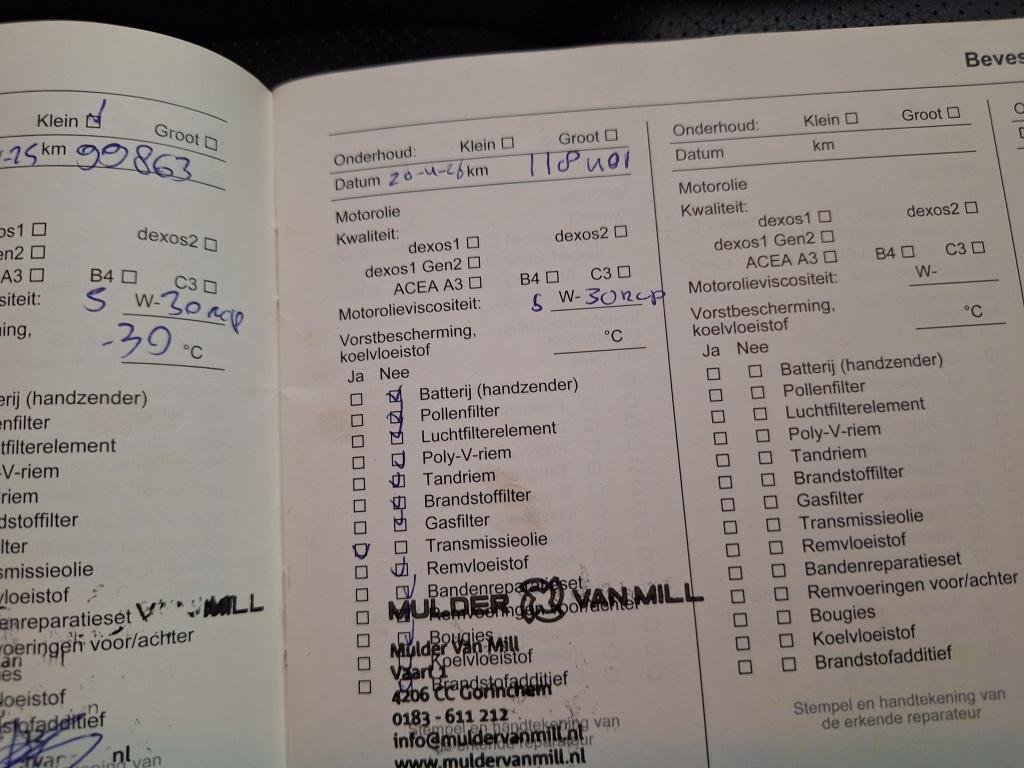 Klein Groot
km 99863
dexos2
B4 C3
5 W-30 rcp
-30 °C
(handzender)
smissieolie
Beves
Onderhoud: Klein Groot
Datum 20-4-26 km 118401
Motorolie
Kwaliteit:
dexos1 dexos2
dexos1 Gen2
ACEA A3 B4 C3
Motorolieviscositeit: 5 W-30 rcp
Vorstbescherming,
koelvloeistof °C
Ja Nee
Batterij (handzender)
Pollenfilter
Luchtfilterelement
Poly-V-riem
Tandriem
Brandstoffilter
Gasfilter
Transmissieolie
Remvloeistof
Bandenreparatieset
MULDER VAN MILL
Remvoeringen voor/achter
Bougies
Mulder Van Mill
Koelvloeistof
Vaart 1
Brandstofadditief
4206 CC Gorinchem
0183 - 611 212
Stempel en handtekening van
info@muldervanmill.nl
de erkende reparateur
www.muldervanmill.nl
Onderhoud: Klein Groot
Datum km
Motorolie
Kwaliteit:
dexos1 dexos2
dexos1 Gen2
ACEA A3 B4 C3
Motorolieviscositeit: W-
Vorstbescherming,
koelvloeistof °C
Ja Nee
Batterij (handzender)
Pollenfilter
Luchtfilterelement
Poly-V-riem
Tandriem
Brandstoffilter
Gasfilter
Transmissieolie
Remvloeistof
Bandenreparatieset
Remvoeringen voor/achter
Bougies
Koelvloeistof
Brandstofadditief
Stempel en handtekening van
de erkende reparateur